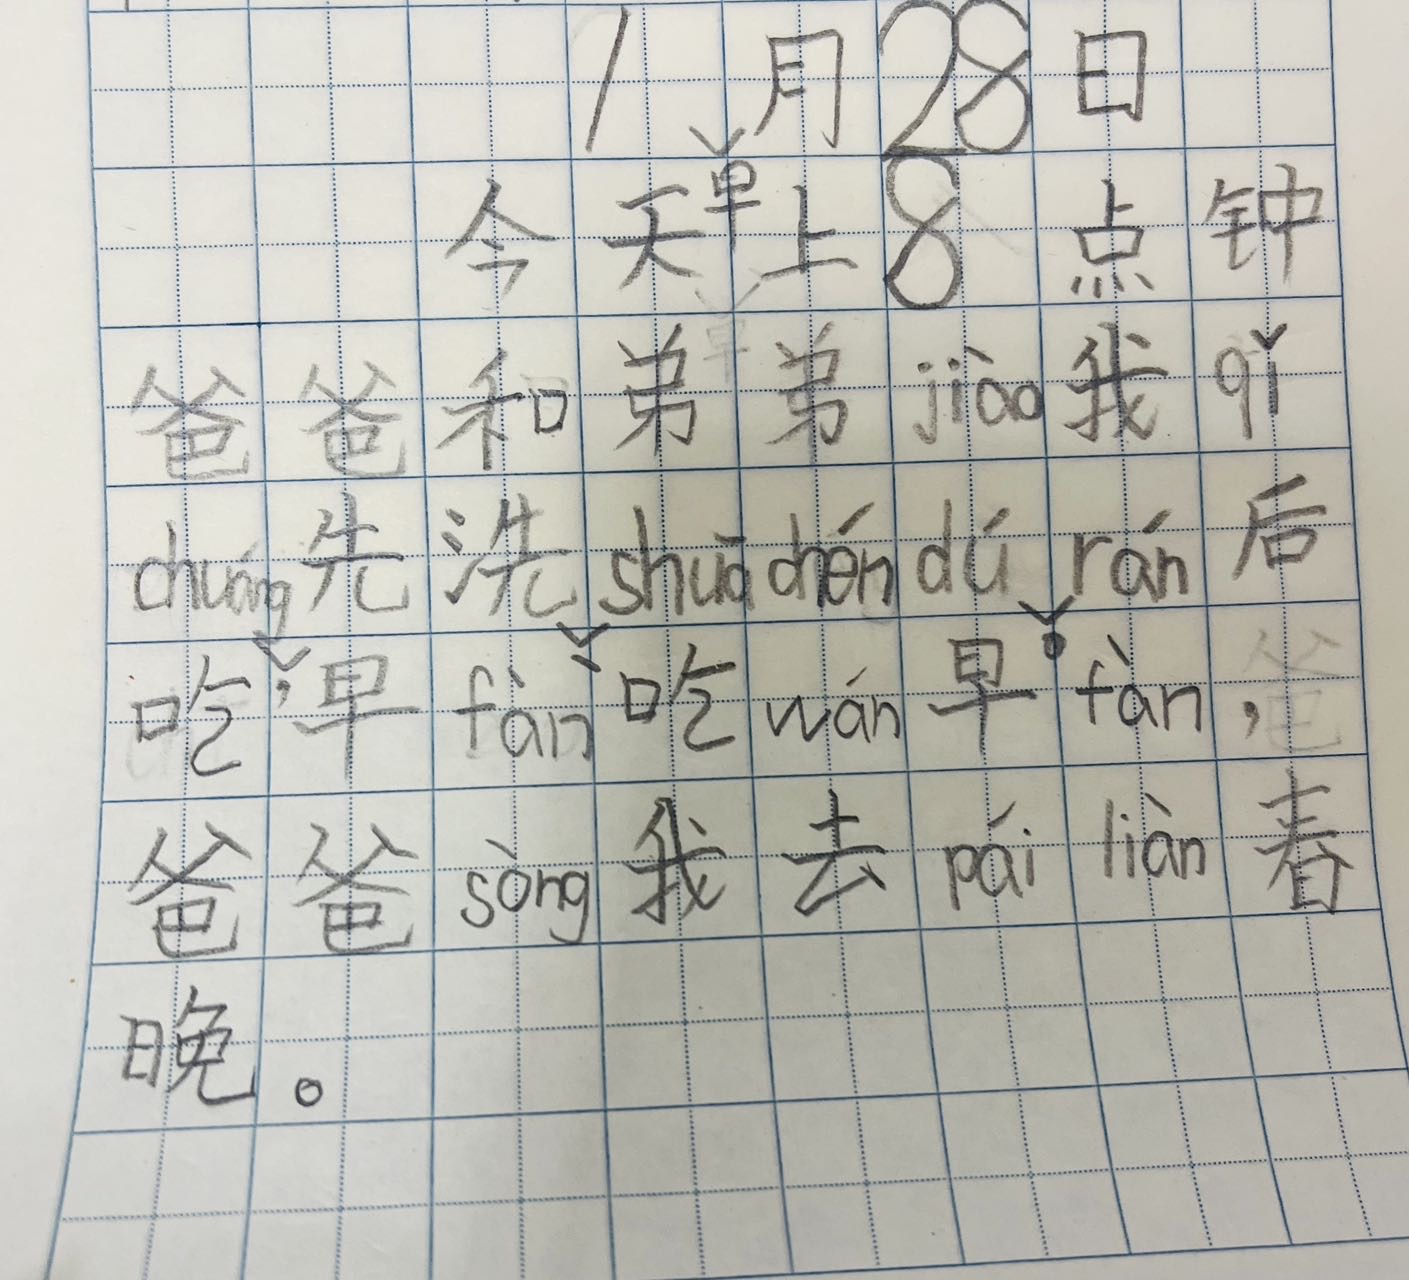 1月28日
今天早上8点钟
爸爸和弟弟jiào我qǐ
chuáng先洗shuāchéndú rán后
吃,早fàn、吃wán早。fàn,
爸爸sòng我去pái liàn春
晚。